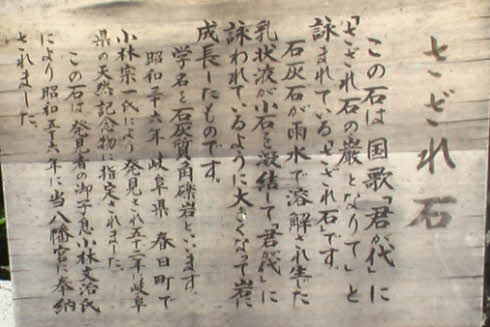 さざれ石
この石は国歌「君が代」に
「さざれ石の巌となりて」と
詠まれている「さざれ石」です。
石灰石が雨水で溶解され生じた
乳状液が小石を凝結して「君が代」に
詠われているように大きくなって岩に
成長したものです。
学名を石灰質角礫岩といいます。
昭和三十六年岐阜県春日町で
小林宗一氏により発見され五十二年岐阜
県の天然記念物に指定されました。
この石は発見者の御子息小林文治氏
により昭和五十六年に当八幡宮に奉納
されました。